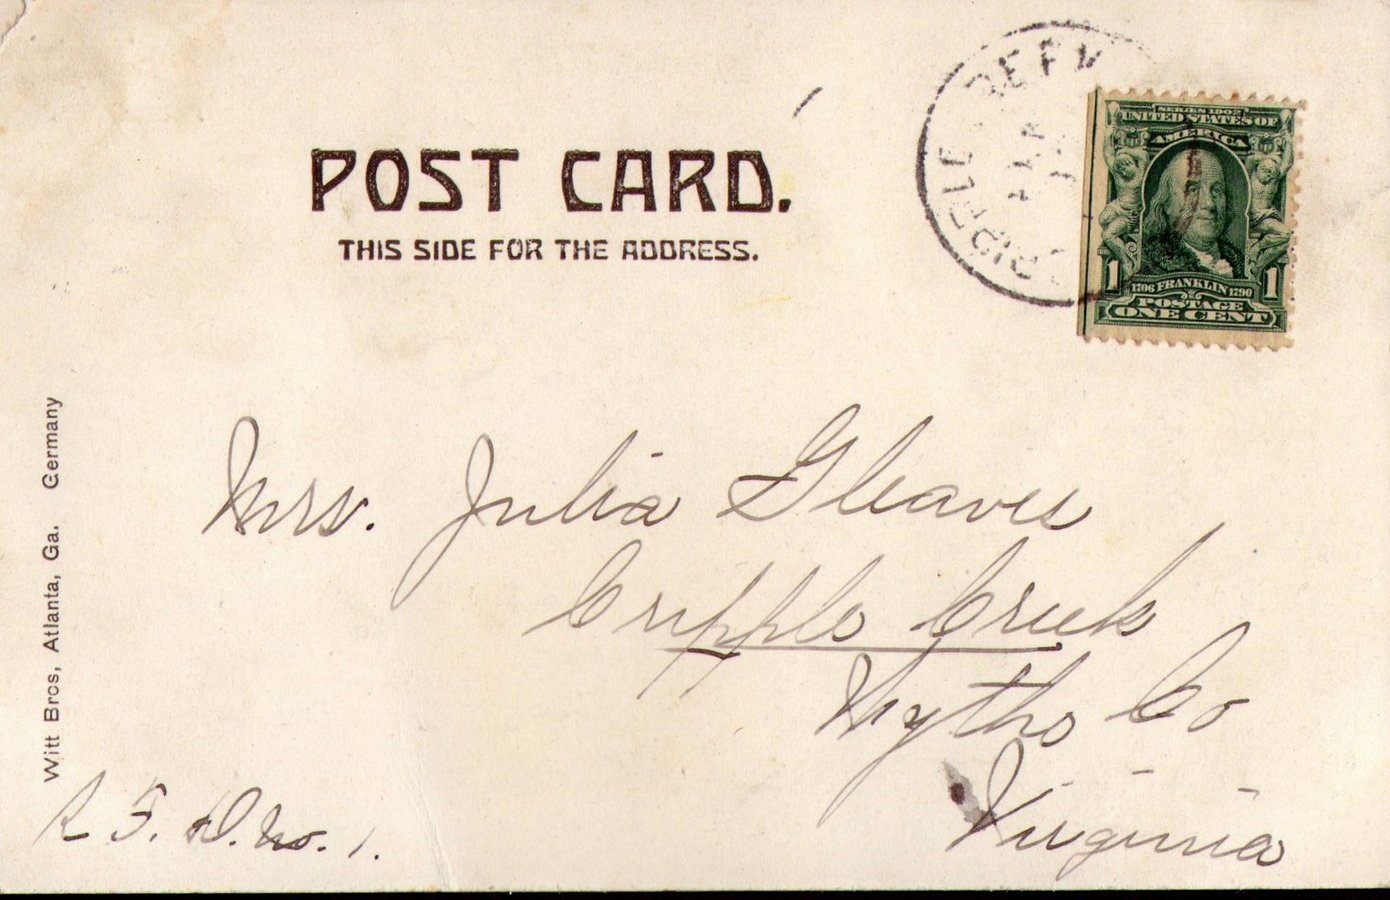 POST CARD.
THIS SIDE FOR THE ADDRESS.
SERIES 1902
UNITED STATES OF
AMERICA
1 1
1706 FRANKLIN 1790
POSTAGE
ONE CENT
Mrs. Julia Gleaves
Cripple Creek
Wythe Co
Virginia
R F. D. No. 1.
Witt Bros, Atlanta, Ga. Germany